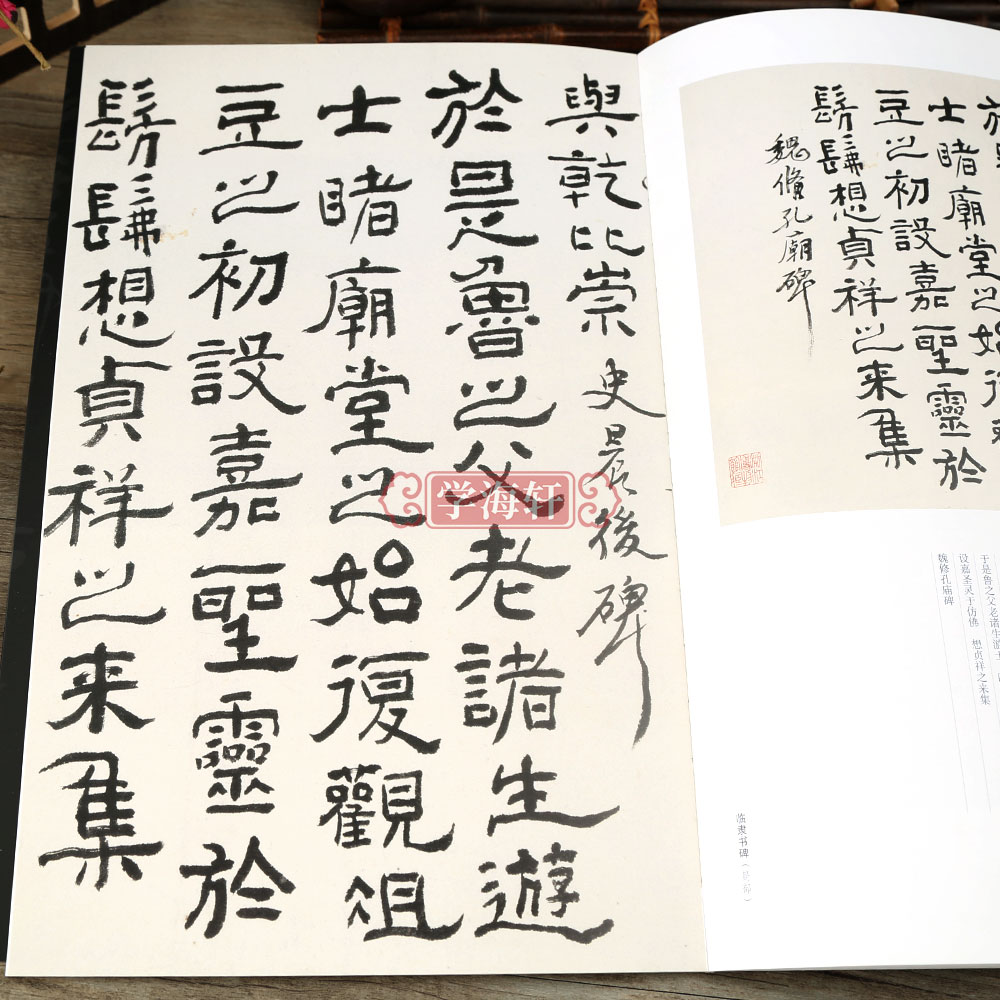 與乾比崇 史晨後碑
於是魯之父老諸生遊
士睹廟堂之始復觀俎
豆之初設嘉聖靈於
髣髴想貞祥之来集
士睹廟堂之始復
豆之初設嘉聖靈於
髣髴想貞祥之来集
魏脩孔廟碑
于是鲁之父老诸生游士
设嘉圣灵于仿佛 想贞祥之来集
魏修孔庙碑
临隶书碑（局部）
学海轩